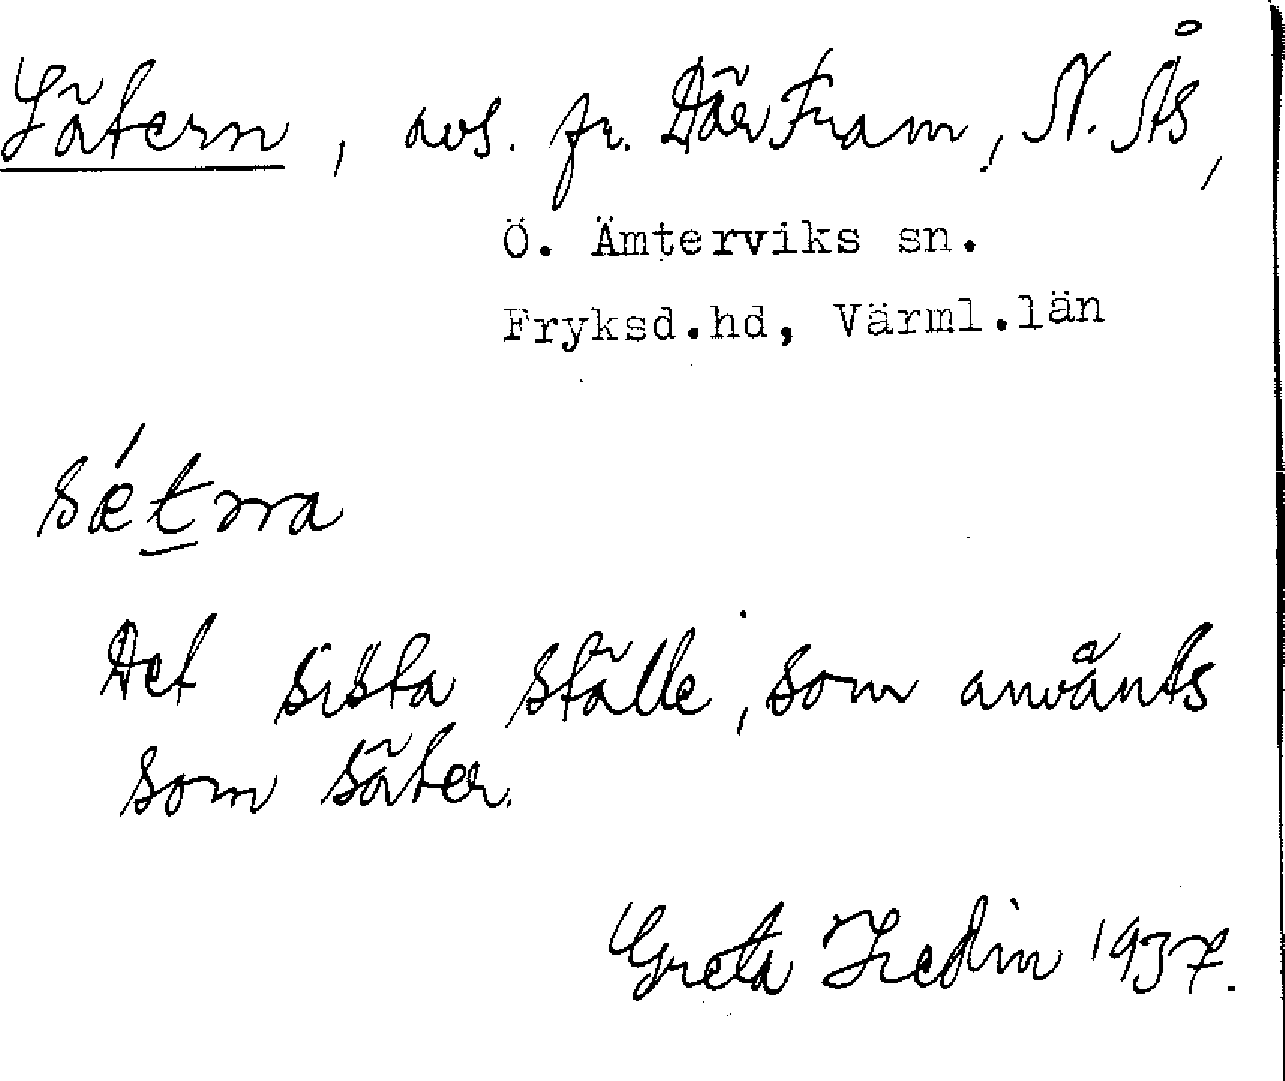 Sätern, avs. fr. Där Fram, N. Ås,
Ö. Ämterviks sn.
Fryksd.hd, Värml.län
Det sista ställe, som använts
som säter.
Greta Hedin 1937.